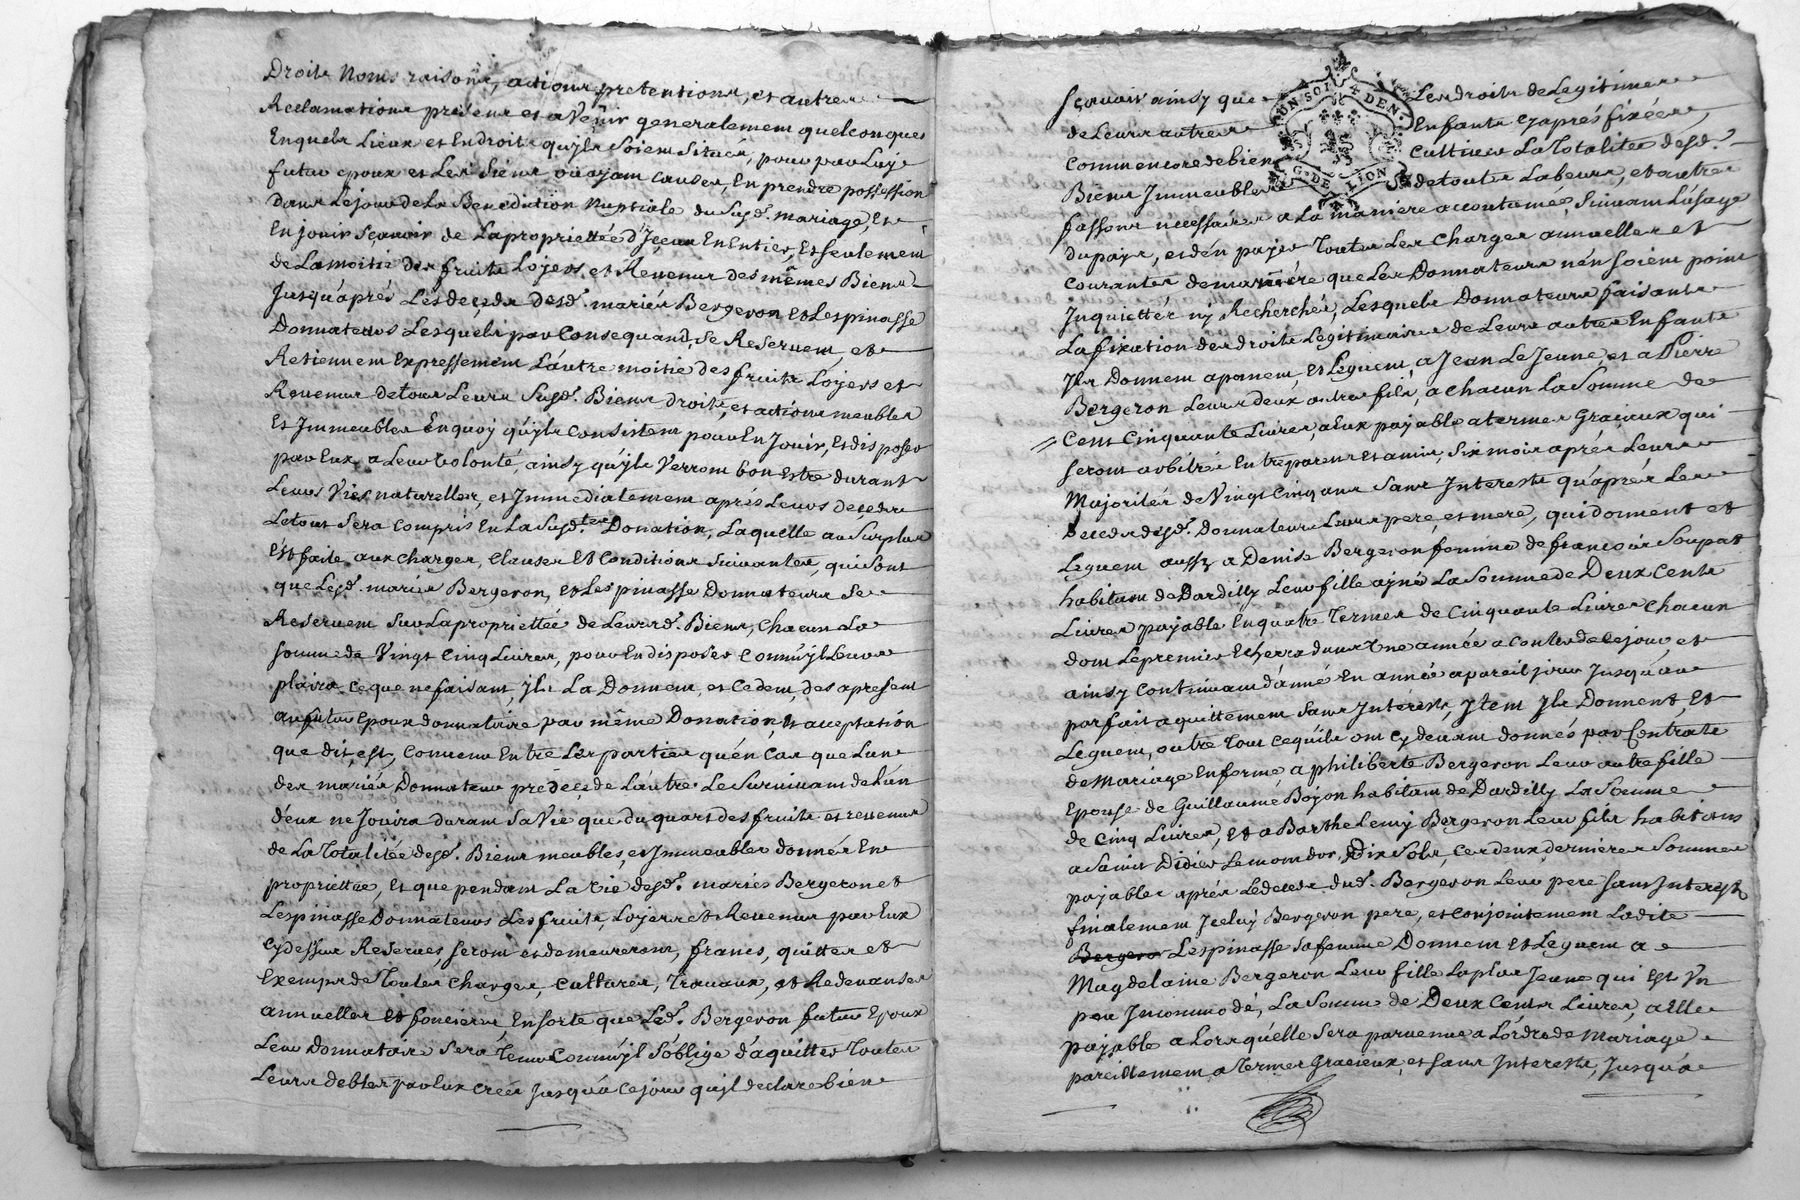 Droits Noms raisons, actions pretentions, et autres
Reclamations presens et avenir generalement quelconques
Enquels Lieux et Endroits quyls soient situés, pour par Luy
futur epoux et Les siens, ou ayant causes, En prendre possession
Dans Lejour de La Benediction nuptiale du susd. mariage, Et
En jouir sçavoir de La proprietteé d'Iceux En Entier, Et seulement
de La moitié des fruits Loyers, et Revenus des mêmes Biens
Jusqu'aprés Les deçeds desd. mariés Bergeron et Lespinasse
Donnateurs Lesquels par Consequand, se Reservent, et
Retiennent Expressement L'autre moitié des fruits Loyers et
Revenus de tous Leurs susd. Biens droits, et actions meubles
Et Immeubles En quoy quyls consistent pour En Jouir, Et disposer
par Eux a Leur volonté, ainsy quyls verront bon Estre durant
Leurs Vies naturelles, et Immediatement aprés Leurs deçeds
Letout sera compris En La susd.te Donation, Laquelle au surplus
Est faite aux charges, clauses Et Conditions suivantes, qui sont
que Lesd. mariés Bergeron, et Lespinasse Donnateurs se
Reservent sur La proprietteé de Leursd. Biens, chacun La
somme de Vingt cinq Livres, pour En disposer comm'yl Leur
plaira ce que ne faisant, yls La Donnent, et cedent, des apresent
au futur Epoux donnataire par même Donation, et acceptation
que dit, est, convenu Entre Les parties qu'en cas que L'un
des mariés Donnateur predeçede L'autre Le survivant de L'un
d'eux ne Jouira durant sa Vie que du quart des fruits et revenus
de La Totalitée desd. Biens meubles, et Immeubles donnés En
proprietteé, Et que pendant La vie desd. mariés Bergeron et
Lespinasse Donnateurs Les fruits, Loyers et Revenus par Eux
cy dessus Reservés, seront et demeureront, francs, quittes et
Exempts de Toutes charges, cultures, Travaux, et Redevanses
annuelles et foncieres En sorte que Led. Bergeron futur Epoux
Leur donnataire sera Tenu comm'yl s'oblige d'aquitter Toutes
Leurs debtes par Eux créés jusqu'a ce jour qu'il declare bien
sçavoir ainsy que Les droits de Legitimes
de Leurs autres Enfants cy aprés fixées,
comm'encore de bien cultiver La Totalitée desd.
Biens Immeubles de toutes Labeurs, et autres
fassons necessaires a La maniere accoutumée, suivant L'usage
du pays, et d'en payer Toutes Les charges annuelles et
courantes de maniére que Les Donnateurs n'en soient point
Inquiettés ny Recherchés, Lesquels Donnateurs faisants
La fixation des droits Legitimaires de Leurs autres Enfants
Yls Donnent apanent, et Leguent, a Jean Le Jeune, et a Pierre
Bergeron Leurs deux autres fils, a chacun La somme de
Cent Cinquante Livres, a Eux payable a termes Graçieux qui
seront arbitrés Entre parens et amis, six mois aprés Leurs
Majorités de Vingt Cinq ans sans Interests qu'aprés Les
Deceds desd. Donnateurs Leurs pere, et mere, qui donnent et
Leguent aussy a Denise Bergeron femme de francois Soupat
habitant de Dardilly Leur fille aynée La somme de Deux Cents
Livres payable En quatre Termes de cinquante Livres chacun
dont Le premier Echerra dans Une année a conter de ce jour, et
ainsy continuant d'anné En année a pareil jour Jusqu'au
parfait aquittement sans Intérests, Item Yls Donnent Et
Leguent, outre Tout ce qu'ils ont cy devant donnés par Contrats
de Mariage En forme, a philiberte Bergeron Leur autre fille
Epouse de Guillaume Boyon habitant de Dardilly La somme
de cinq Livres, Et a Barthelemy Bergeron Leur fils habitans
a saint Didier Le mont dor, Dix sols, ces deux dernieres sommes
payables aprés Le deceds dud. Bergeron Leur pere sans Interest
finalement Iceluy Bergeron pere, et conjointement Ladite
Bergeron Lespinasse sa femme Donnent et Leguent a
Magdelaine Bergeron Leur fille La plus Jeune qui Est Un
peu Incommodé, La somme de Deux Cents Livres, a Elle
payable a Lors qu'elle sera parvenue a L'ordre de mariage
pareillement a Termes Gracieux, et sans Interests, Jusqu'a
UN SOL 4 DEN.
G. DE LION